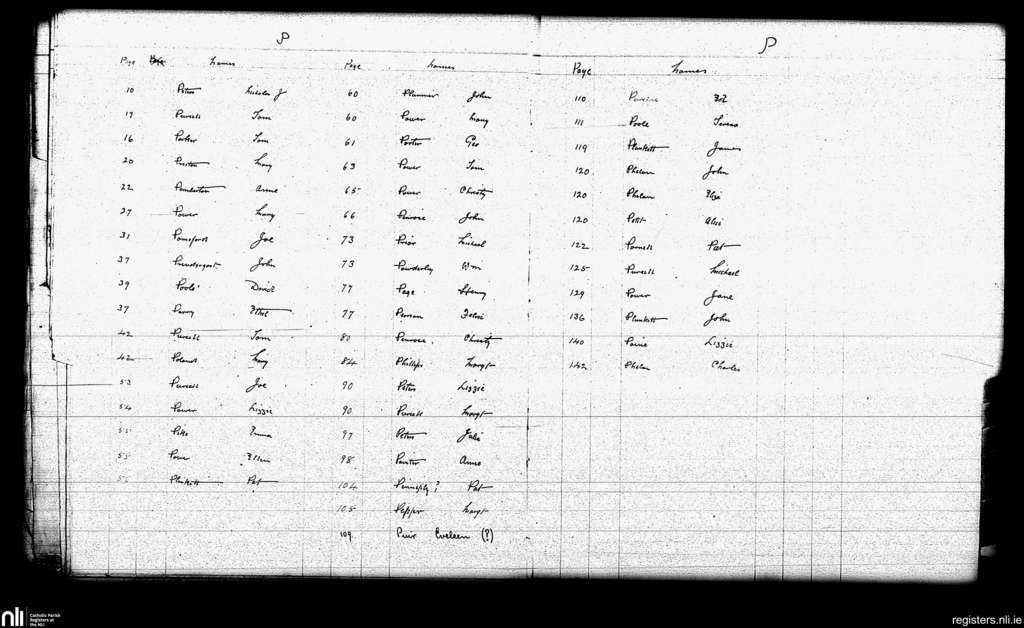 P
Page Names
10 Peters Nicholas J
19 Purcell Tom
16 Parker Tom
20 Preston Mary
22 Pemberton Anne
27 Power Mary
31 Pomeford Joe
37 John
39 Poole David
37 Perry Ethel
42 Purcell Tom
42 Poland Mary
53 Purcell Joe
54 Power Lizzie
55 Pitts Emma
55 Power Ellen
56 Plunkett Pat
Page Names
60 Plummer John
60 Power Mary
61 Porter Geo
63 Power Tom
65 Power Christy
66 Penrose John
73 Prior Michael
73 Powderley Wm
77 Page Henry
77 Pearson John
80 Penrose Christy
84 Phillips Margt
90 Peters Lizzie
90 Purcell Margt
97 Peters Julia
98 Painter Anne
104 Principly? Pat
105 Pepper Margt
109 Puir Eveleen (?)
P
Page Names
110
111 Poole Teresa
119 Plunkett James
120 Phelan John
120 Phelan Eliza
120 Petit Alice
122 Parnell Pat
125 Purcell Michael
129 Power Jane
136 Plunkett John
140 Lizzie
142 Phelan Charles
nli Catholic Parish
Registers at
the NLI
registers.nli.ie